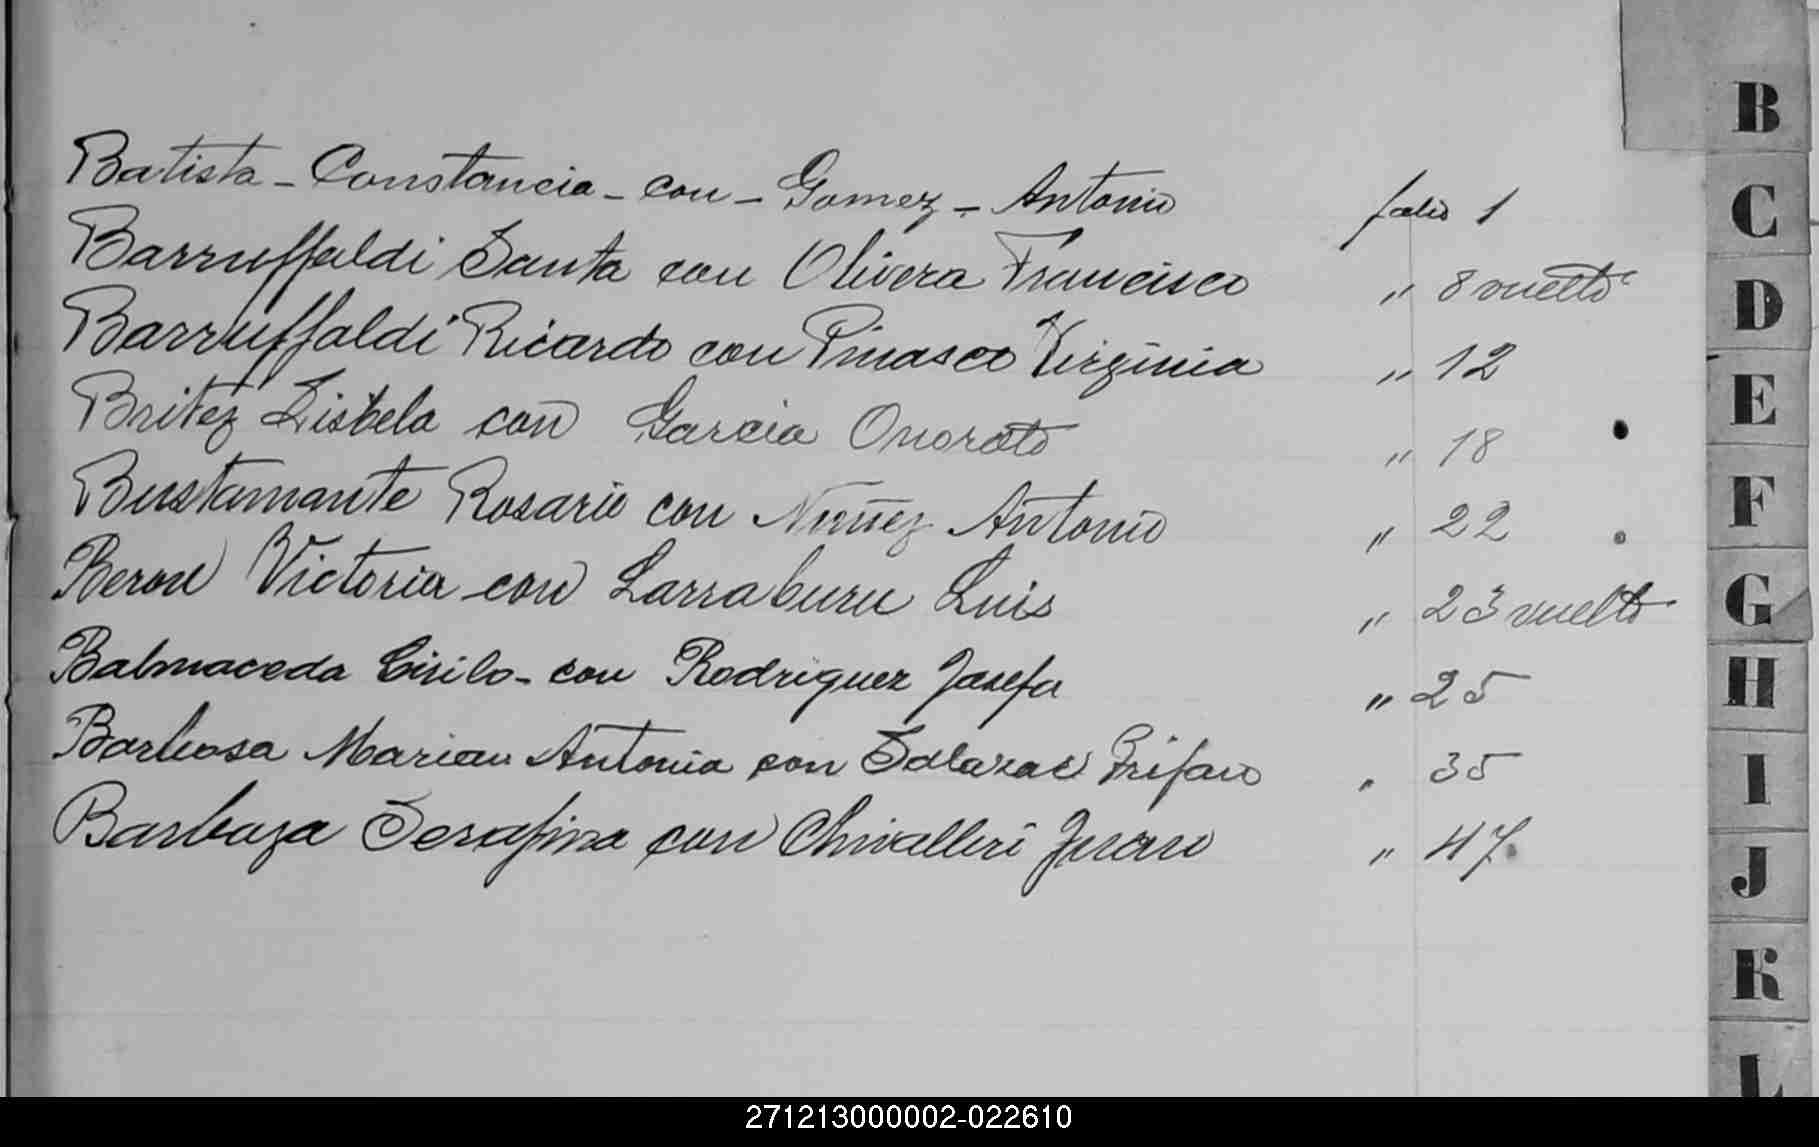 Batista - Constancia - con - Gomez - Antonio folio 1
Barruffaldi Santa con Olivera Francisco " 8 vuelto
Barruffaldi Ricardo con Pinasco Virginia " 12
Britez Lisbela con Garcia Onorato " 18
Bustamante Rosario con Nuñez Antonio " 22
Beron Victoria con Larraburu Luis " 23 vuelto
Balmaceda Cirilo - con Rodriguez Josefa " 25
Barbosa Maria Antonia con Salazar " 35
Barboza Serafina con Chivalleri Juan " 47
B
C
D
E
F
G
H
I
J
K
L
271213000002-022610